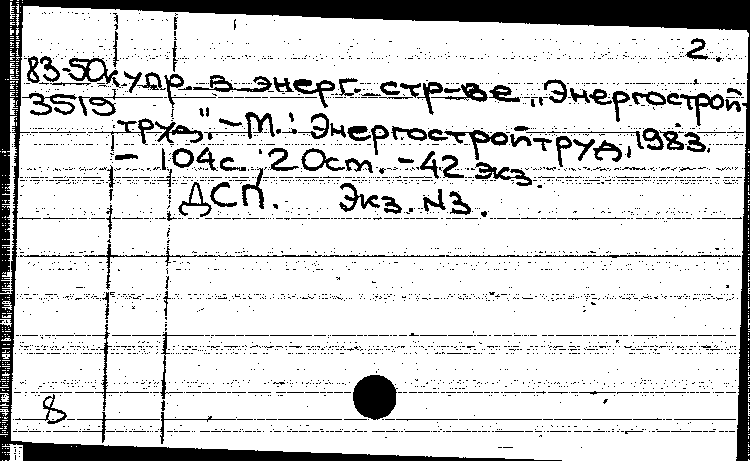 2.
83-50к упр. в энерг. стр-ве „Энергострой-
3519 труд". – М.: Энергостройтруд, 1983.
– 104с.; 20см. – 42 экз.
ДСП. Экз. N3.
8